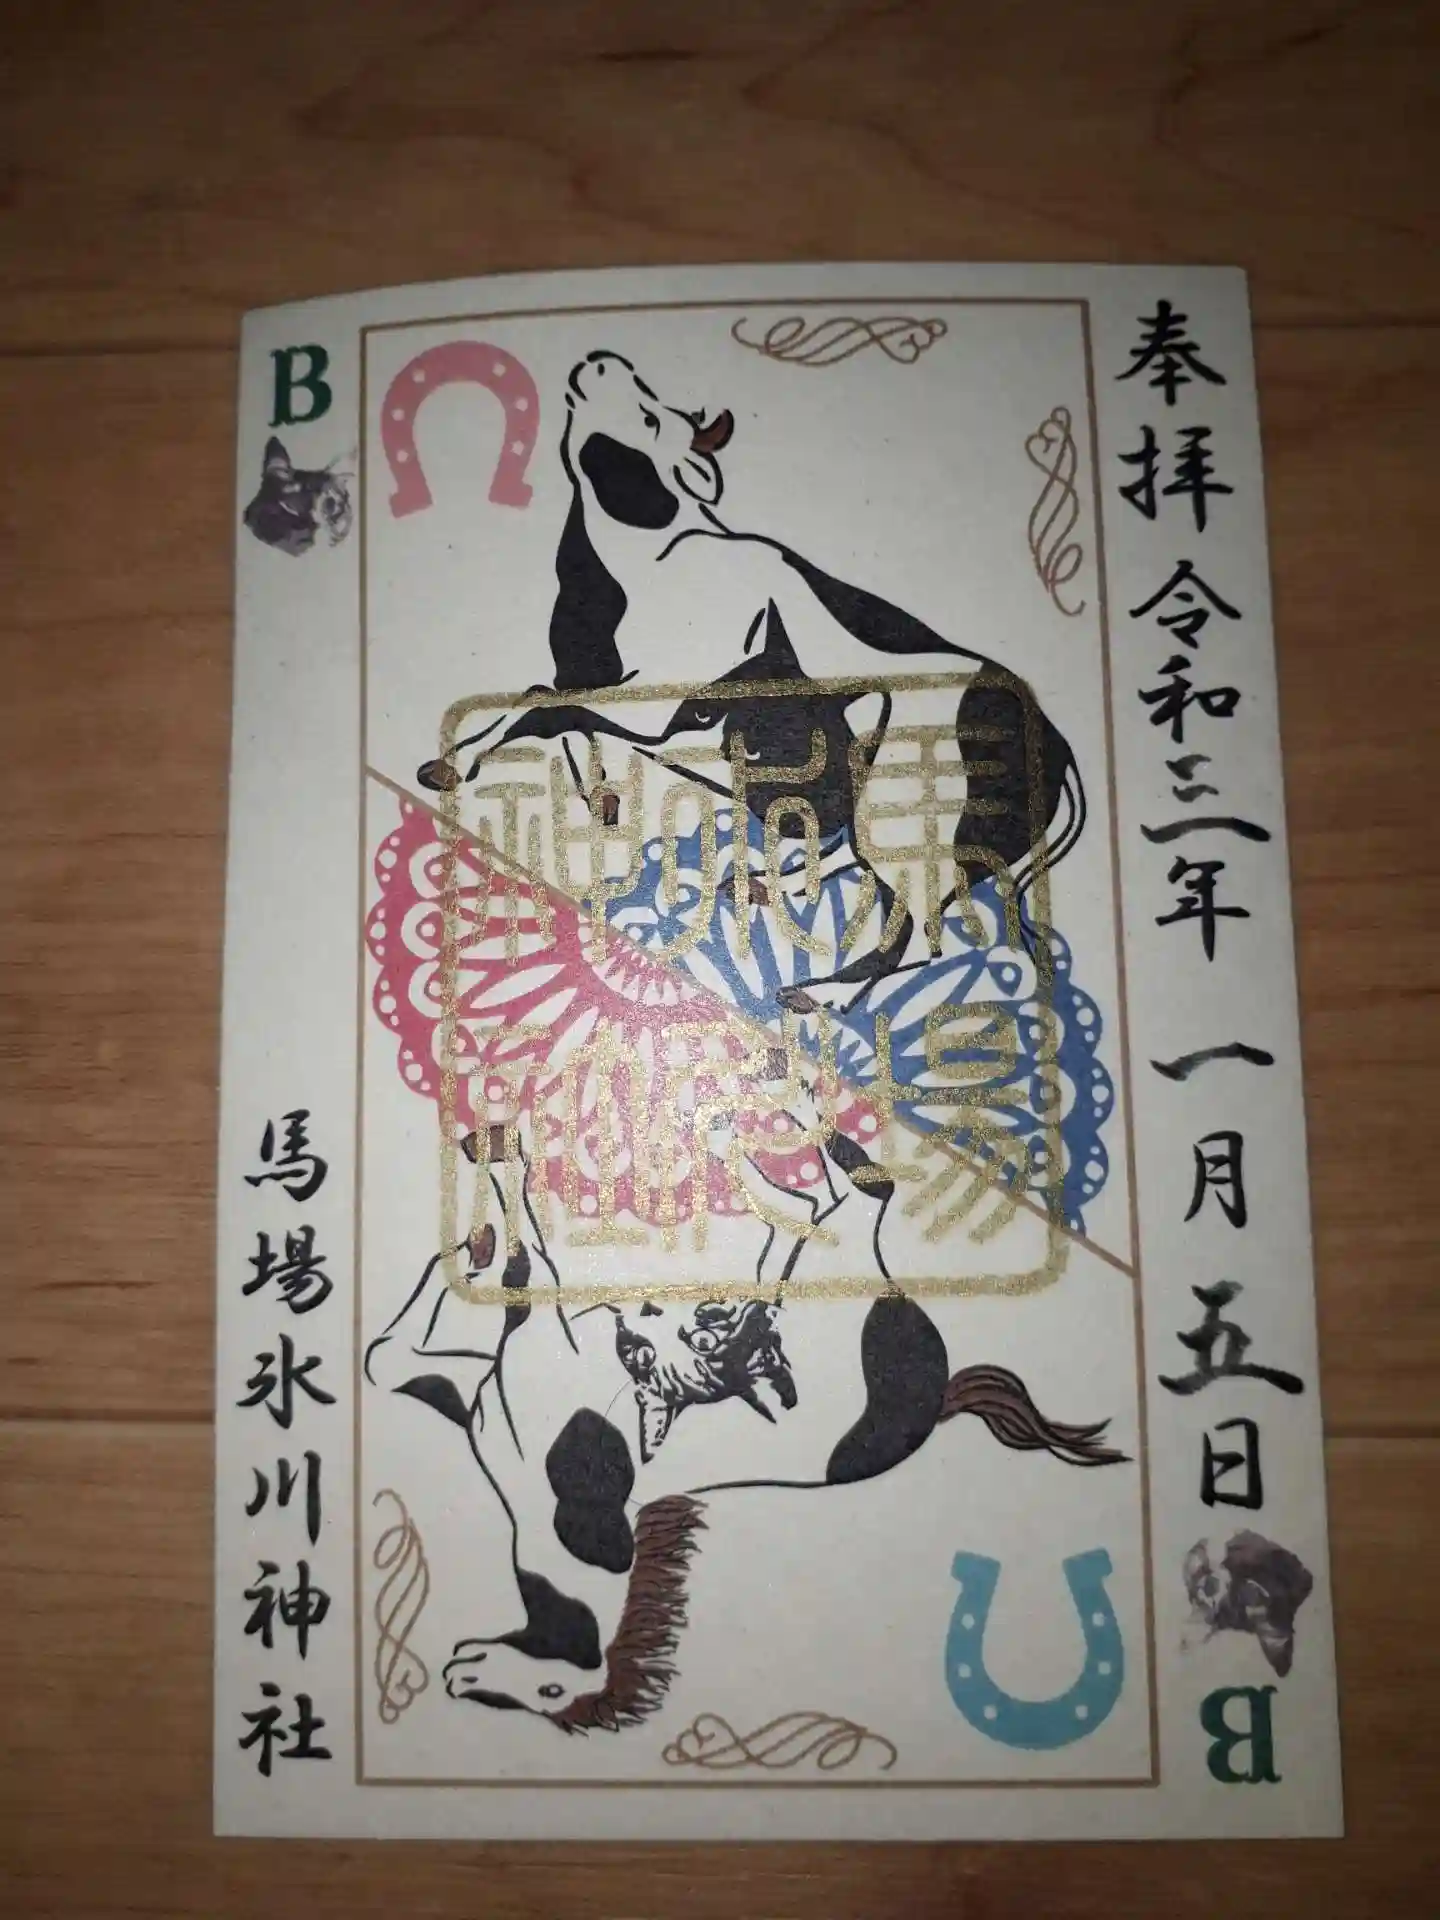 奉拝 令和三年 一月 五日
B
馬場氷川神社
馬場
氷川
神社
B